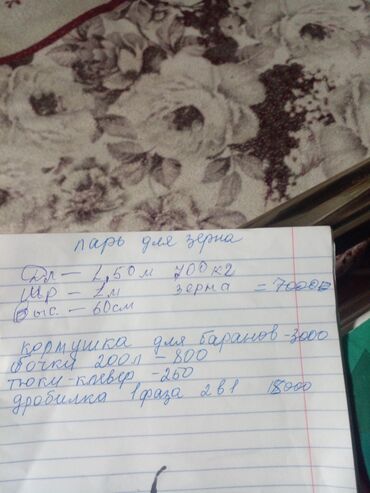 ларь для зерна
Дл - 2,50м 700кг
Шр - 2м зерна = 7000
Выс. - 60см
кормушка для баранов - 3000
бочки 200л - 800
тюки-клевер - 250
дробилка 1 фаза 2в1 18000